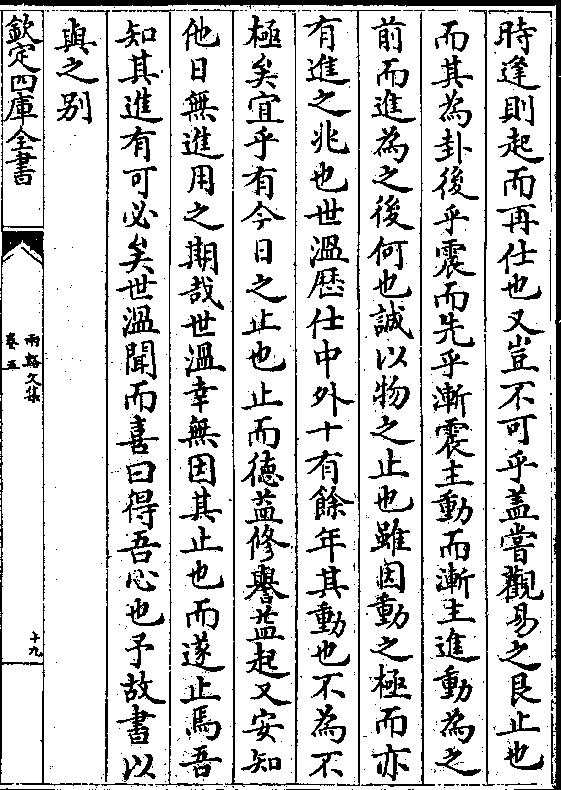 時逢則起而再仕也又豈不可乎蓋嘗觀易之艮止也
而其為卦後乎震而先乎漸震主動而漸主進動為之
前而進為之後何也誠以物之止也雖因動之極而亦
有進之兆也世溫歷仕中外十有餘年其動也不為不
極矣宜乎有今日之止也止而德益修譽益起又安知
他日無進用之期哉世溫幸無因其止也而遂止焉吾
知其進有可必矣世溫聞而喜曰得吾心也予故書以
與之别
欽定四庫全書
兩谿文集
卷五
十九